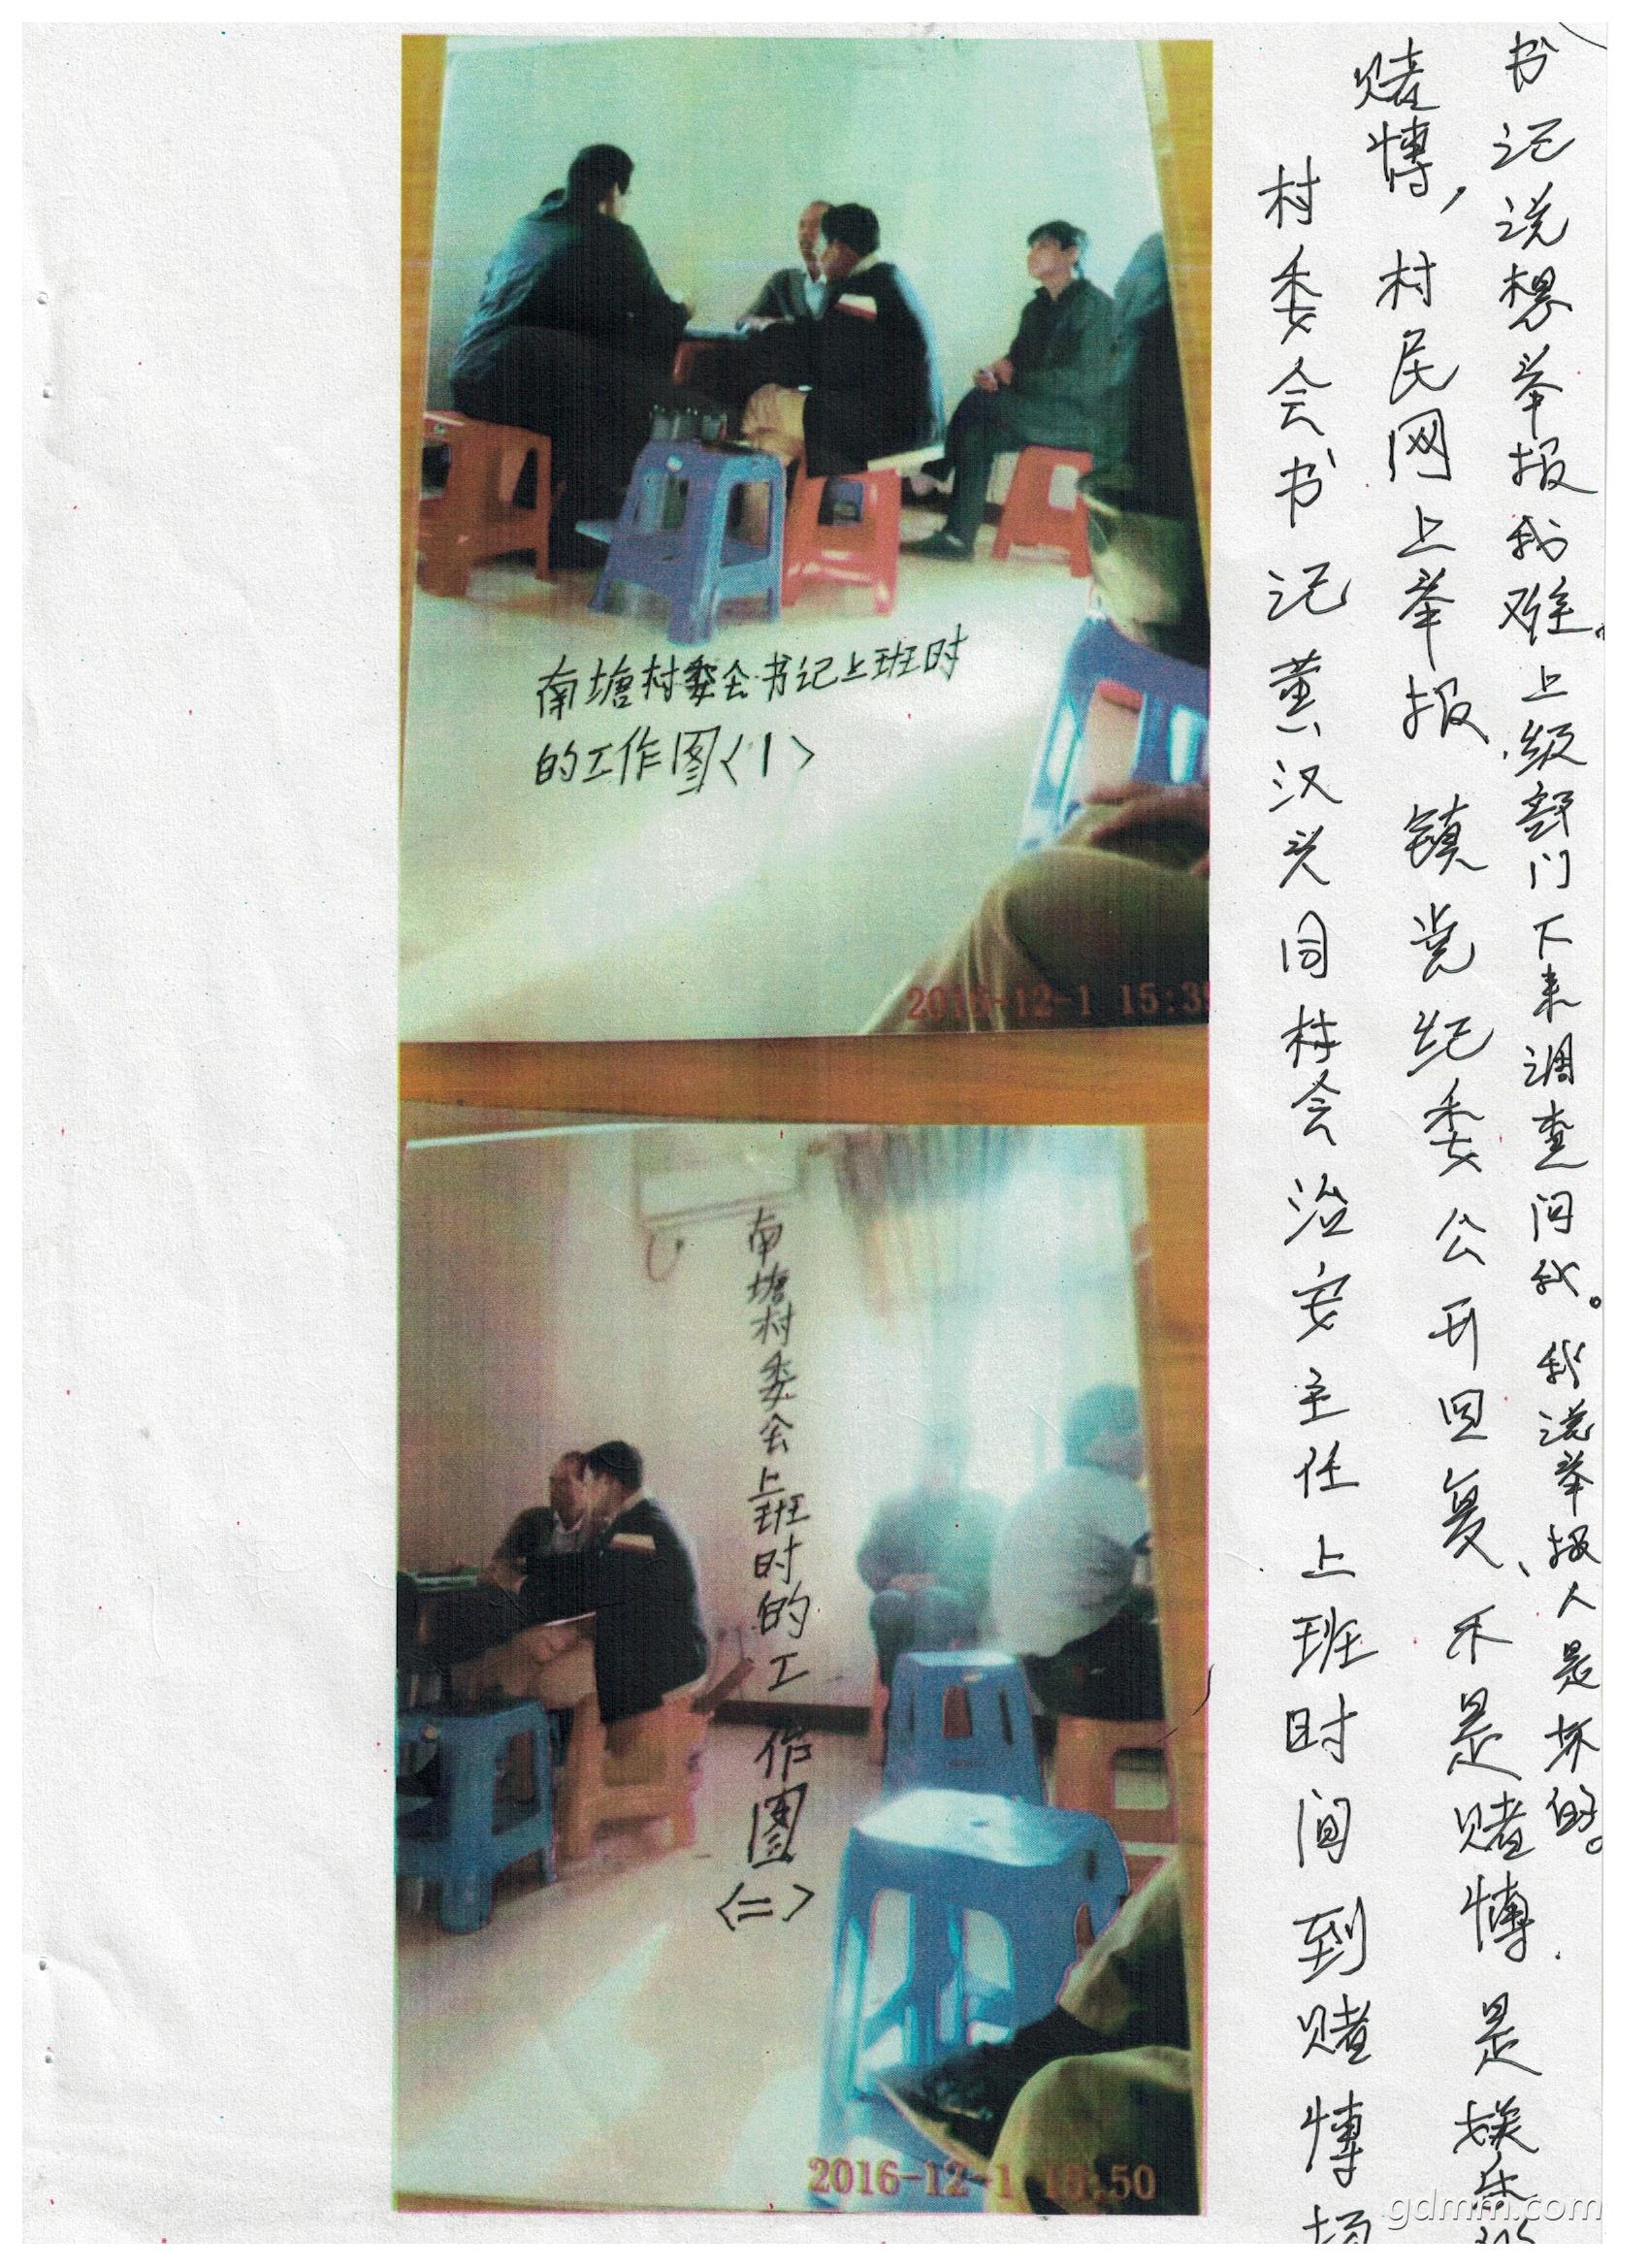 村委会书记黄汉兴同村会治安主任上班时间到赌博场
赌博，村民网上举报镇党纪委公开回复、不是赌博.是娱乐
书记说想举报我难。上级部门下来调查问我。我说举报人是坏的。
南塘村委会书记上班时
的工作图<1>
2016-12-1 15:3
南塘村委会上班时的工作图<二>
2016-12-1 :50
gdmm.com